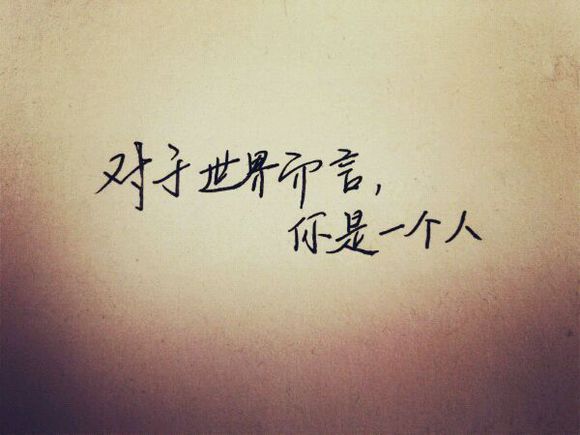 对于世界而言，
你是一个人